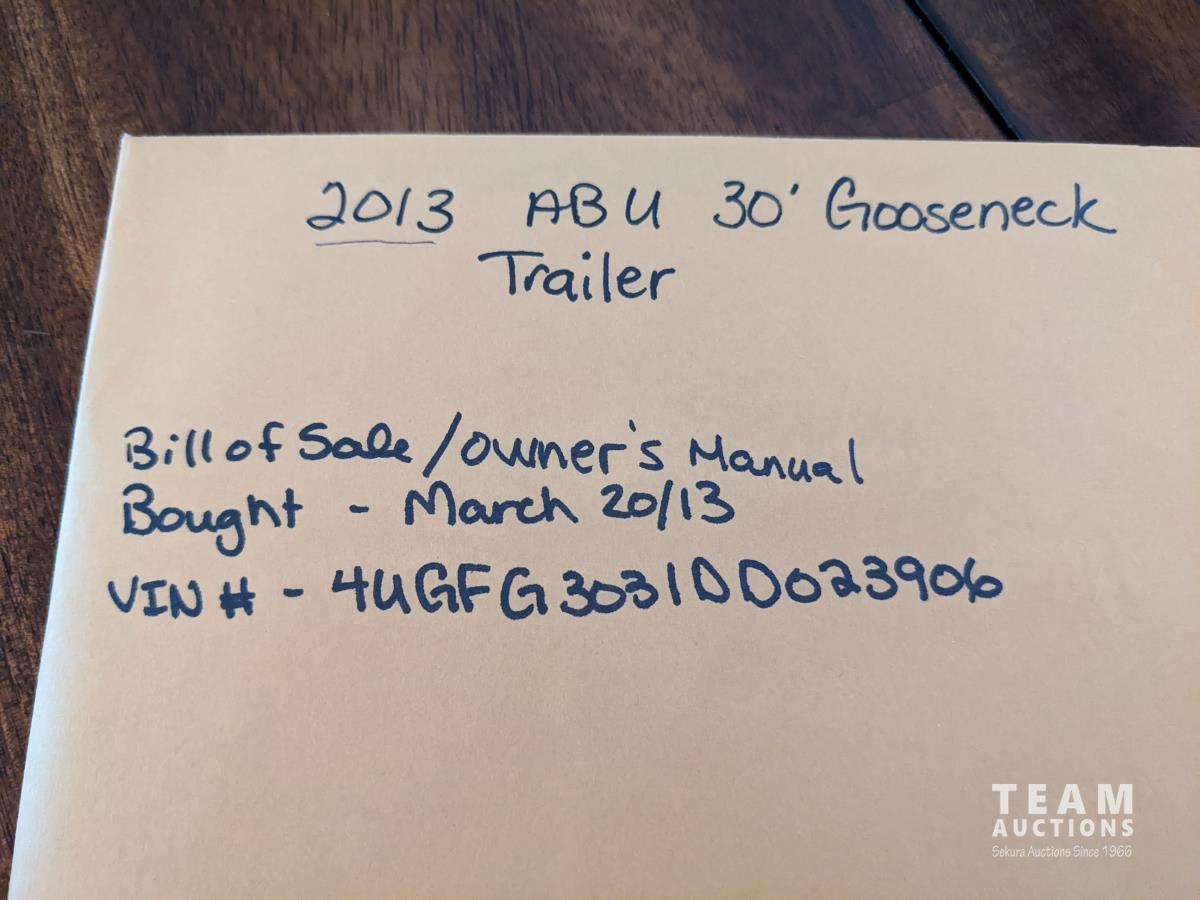 2013 ABU 30' Gooseneck
Trailer
Bill of Sale/owner's Manual
Bought - March 20/13
VIN # - 4UGFG3031DD023906
TEAM
AUCTIONS
Sekura Auctions Since 1966